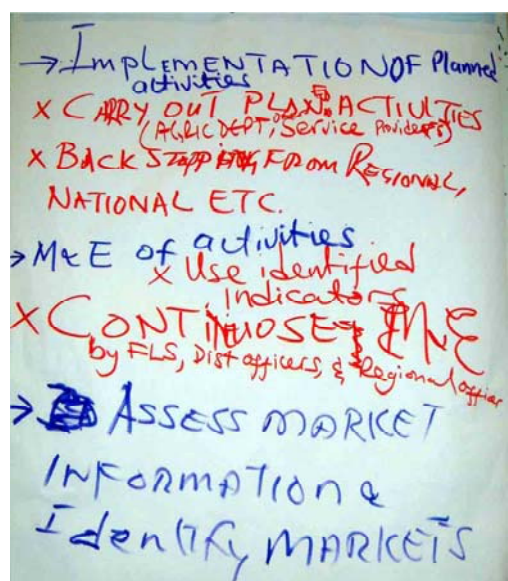 → IMPLEMENTATION OF Planned
activities
x CARRY OUT PLAN. ACTIVITIES
(AGRIC DEPT, Service Providers)
x BACK STOPPING FROM REGIONAL,
NATIONAL ETC.
→ M & E of activities
x Use identified
indicators
x CONTINUOSE M&E
by FLS, Dist officers, & Regional officer
→ ASSESS MARKET
INFORMATION &
Identify MARKETS